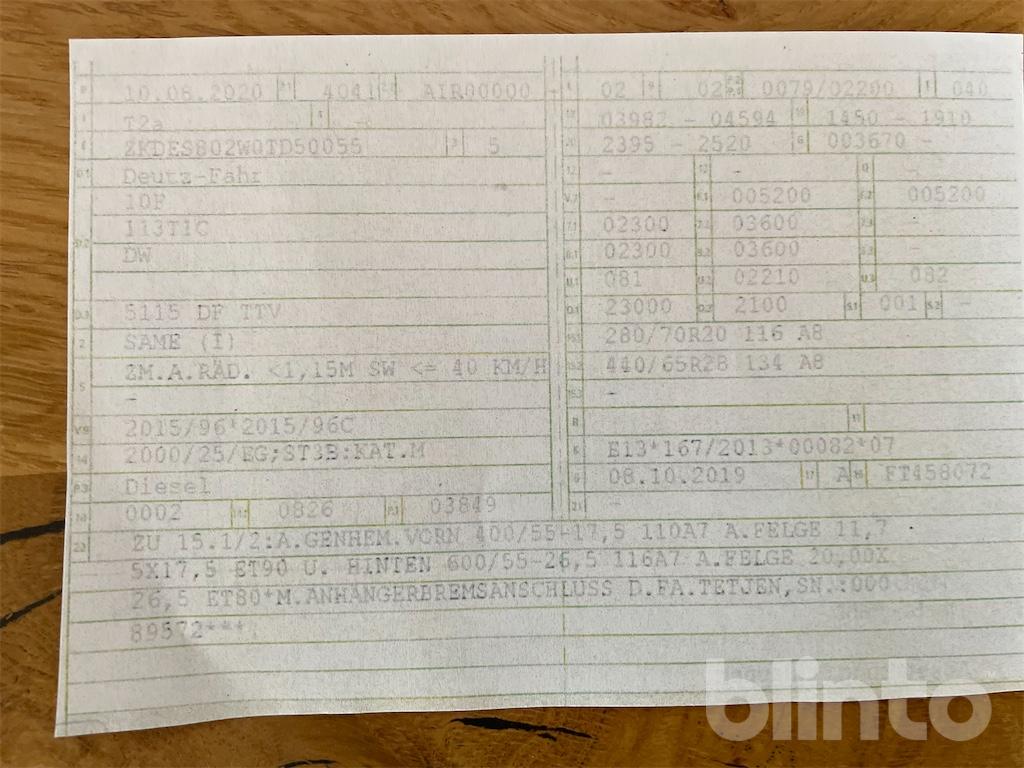 10.08.2020 4041 AIR00000
T2a -
ZKDES802W0TD50055 5
Deutz-Fahr
1DF
113T1C
DW
5115 DF TTV
SAME (I)
ZM.A.RÄD. <1,15M SW <= 40 KM/H
-
2015/96*2015/96C
2000/25/EG;ST3B:KAT.M
Diesel
0002 0826 03849
02 02 0079/02200 040
03982 - 04594 1450 - 1910
2395 - 2520 003670 -
- - -
- 005200 005200
02300 03600 -
02300 03600 -
081 02210 082
23000 2100 001 -
280/70R20 116 A8
440/65R28 134 A8
-
E13*167/2013*00082*07
08.10.2019 A FT458072
-
ZU 15.1/2:A.GENHEM.VORN 400/55-17,5 110A7 A.FELGE 11,7
5X17,5 ET90 U. HINTEN 600/55-26,5 116A7 A.FELGE 20,00X
26,5 ET80*M.ANHÄNGERBREMSANSCHLUSS D.FA.TETJEN,SN.:000
89572***
blinto